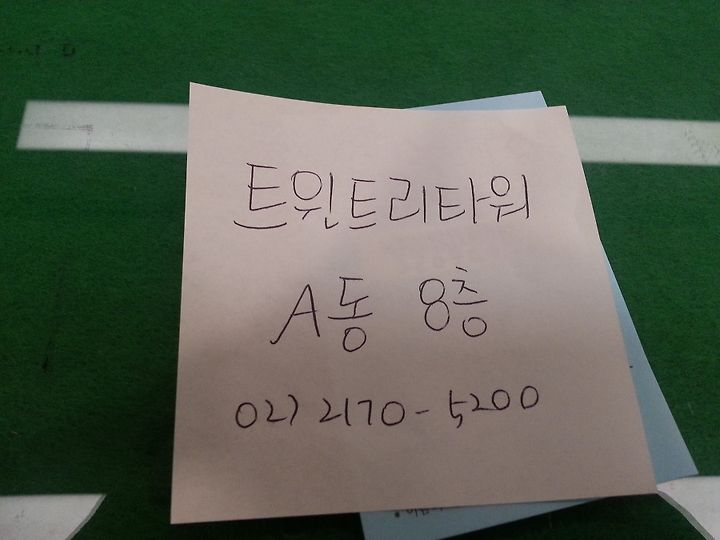 트윈트리타워
A동 8층
02) 2170-5200